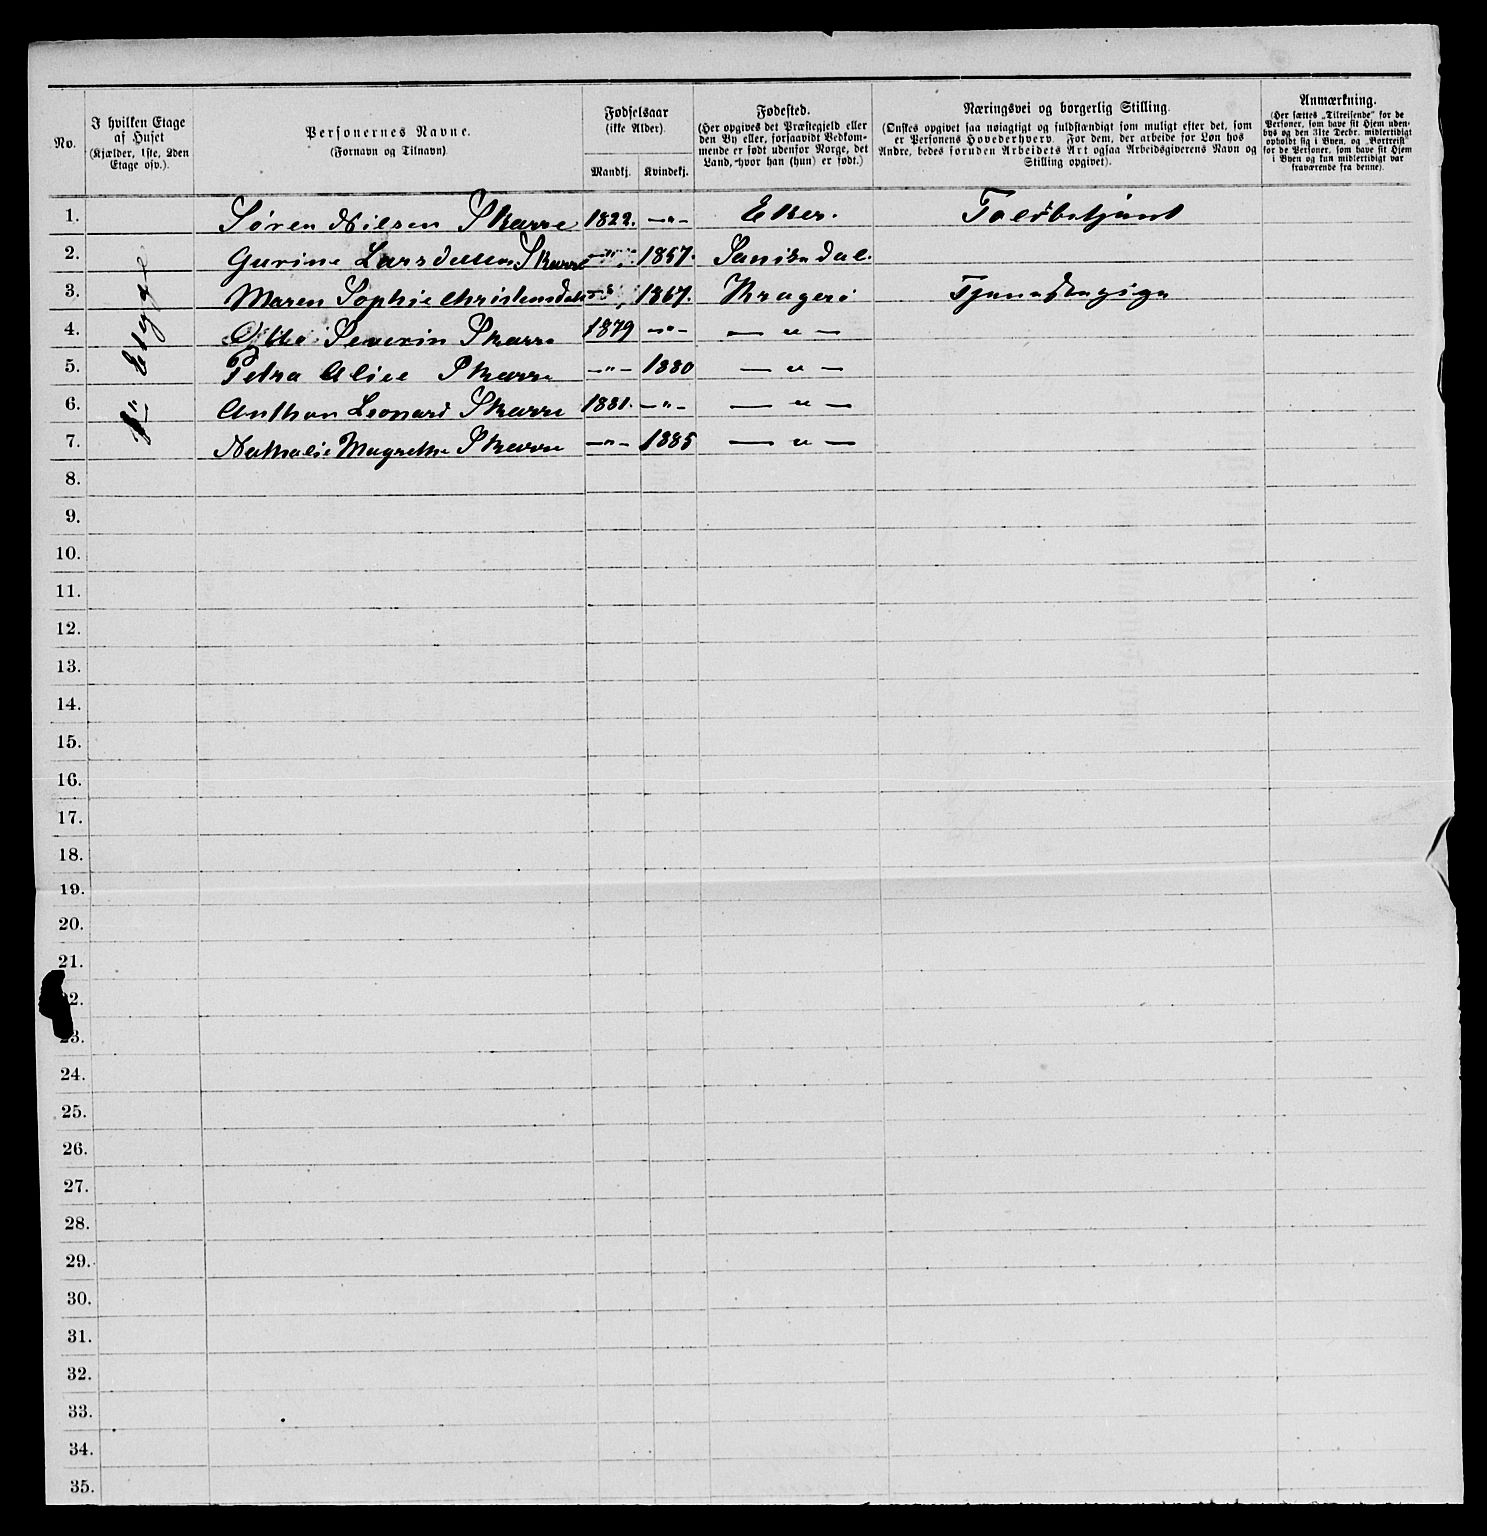 No.
I hvilken Etage
af Huset
(Kjælder, 1ste, 2den
Etage osv.)
Personernes Navne.
(Fornavn og Tilnavn)
Fødselsaar
(ikke Alder).
Mandkj. Kvindekj.
Fødested.
(Her opgives det Præstegjeld eller
den By eller, forsaavidt Vedkom-
mende er født udenfor Norge, det
Land, hvor han (hun) er født.)
Næringsvei og borgerlig Stilling.
(Ønskes opgivet saa nøiagtigt og fuldstændigt som muligt efter det, som
er Personens Hovederhverv. For dem, der arbeide for Løn hos
Andre, bedes foruden Arbeidets Art ogsaa Arbeidsgiverens Navn og
Stilling opgivet).
Anmærkning.
(Her sættes „Tilreisende" for de
Personer, som have sit Hjem uden-
bys og den 31te Decbr. midlertidigt
opholdt sig i Byen, og „Bortreist"
for de Personer, som have sit Hjem
i Byen og kun midlertidigt var
fraværende fra denne).
1. Søren Nilsen Skarre 1822. —"— Eker. Toldbetjent
2. Gurine Larsdatter Skarre —"— 1857. Sanikedal.
3. Maren Sophie Christensdatter —"— 1867. Kragerø
4. Otto Severin Skarre 1879 —"— — " —
5. Petra Alise Skarre —"— 1880 — " —
6. Anthon Leonard Skarre 1881. —"— — " —
7. Nathalie Magrethe Skarre —"— 1885 — " —
8.
9.
10.
11.
12.
13.
14.
15.
16.
17.
18.
19.
20.
21.
22.
23.
24.
25.
26.
27.
28.
29.
30.
31.
32.
33.
34.
35.